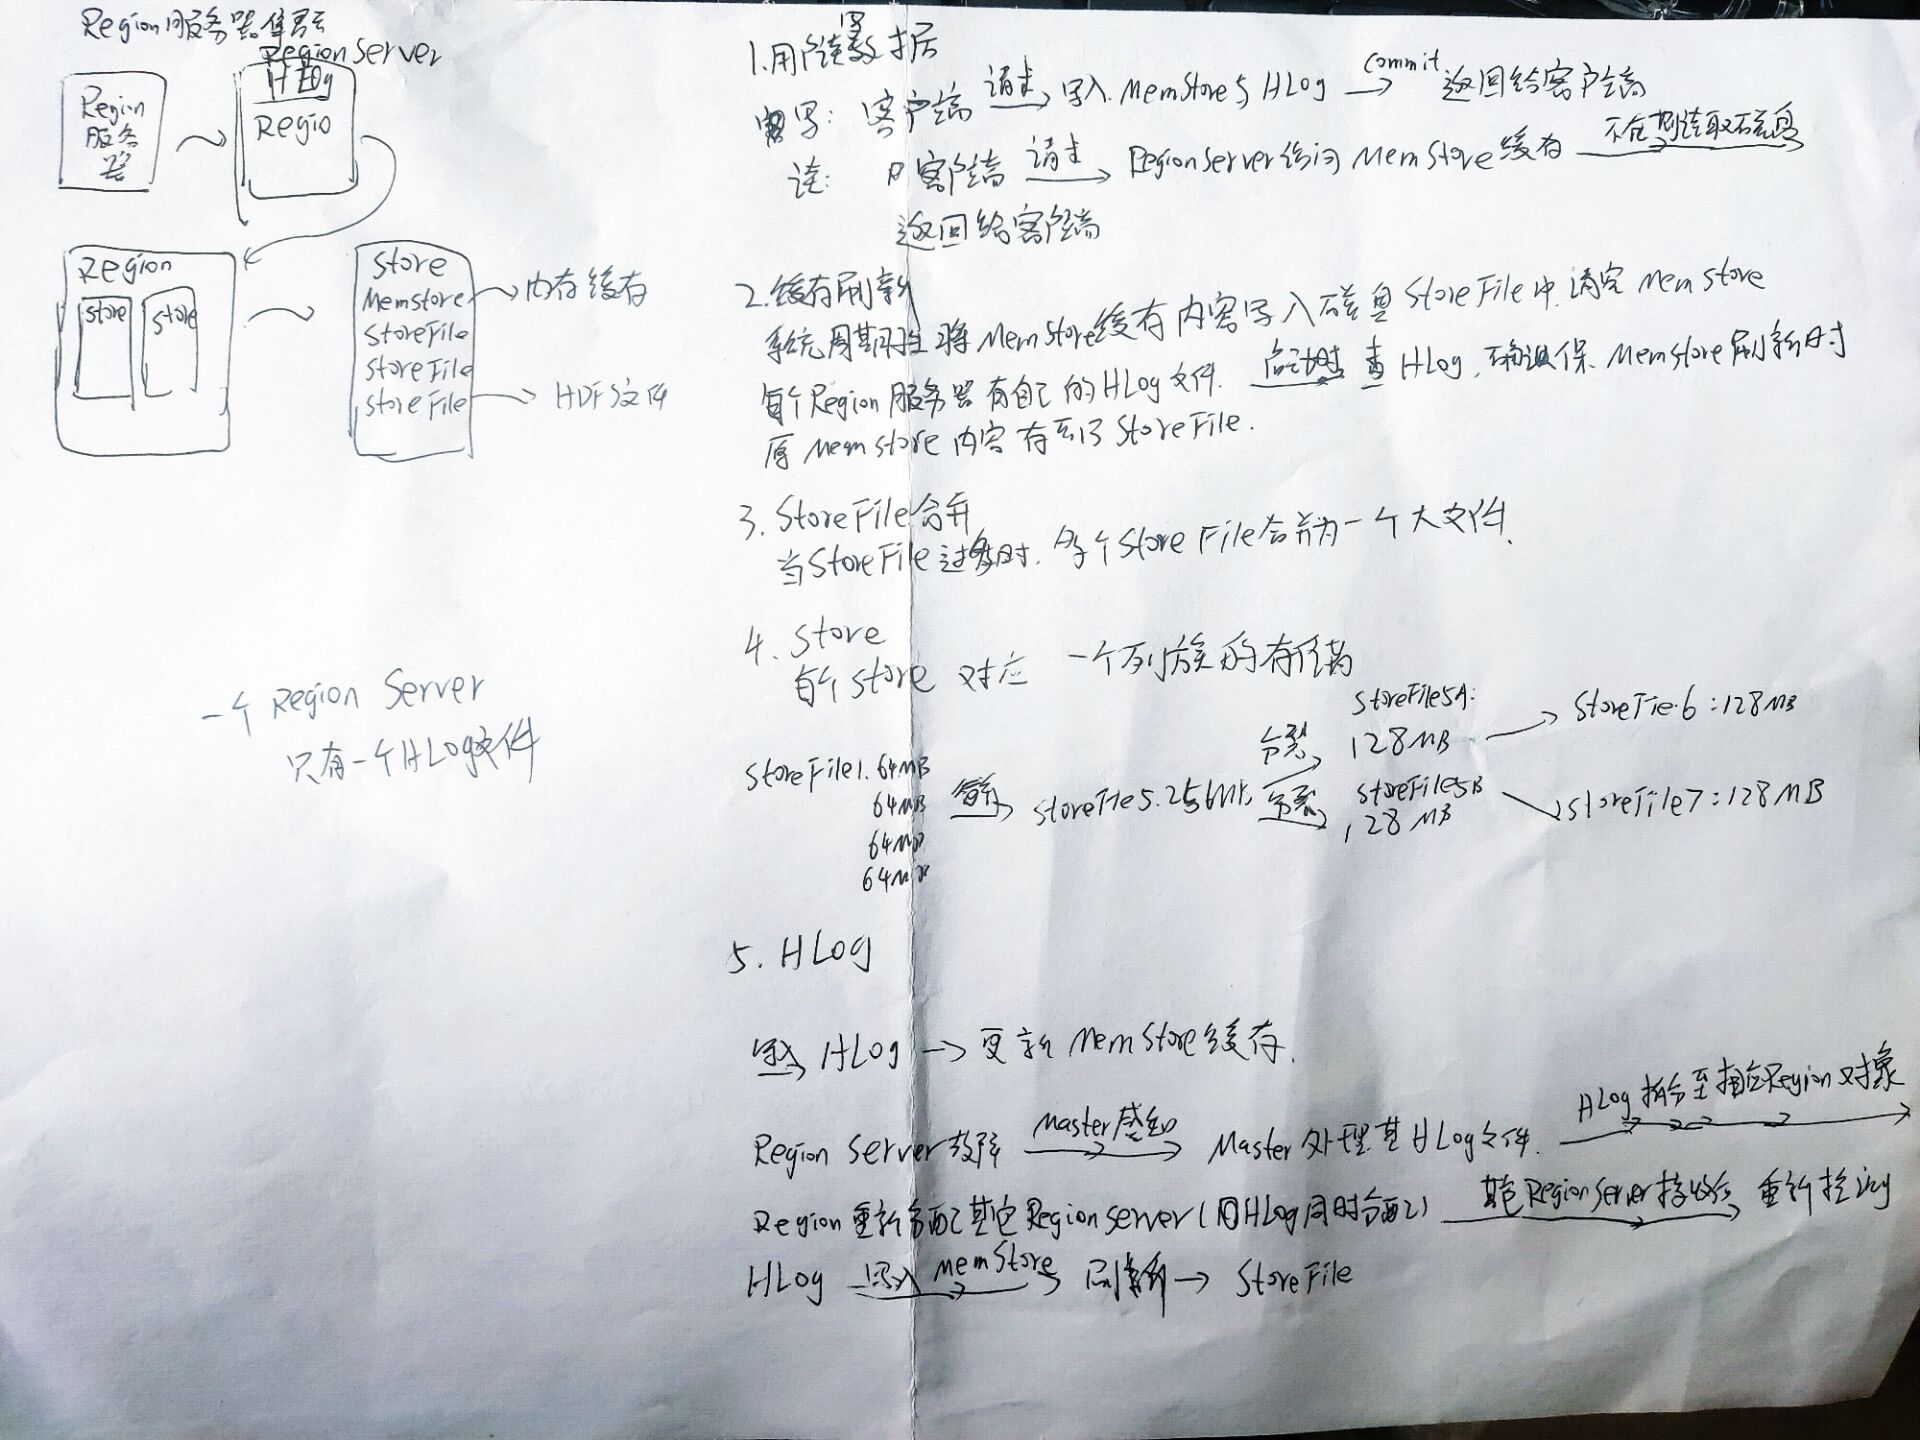 Region服务器集群
Region Server
HLog
Region
服务
器
Regio
Region
store
store
Store
Memstore → 内存缓存
StoreFile
StoreFile
StoreFile → HDFS文件
一个Region Server
只有一个HLog文件
1.用户读写数据
写: 客户端 请求→ 写入MemStore与HLog commit→ 返回给客户端
读: 客户端 请求→ RegionServer访问MemStore缓存 不在则读取磁盘→
返回给客户端
2.缓存刷新
系统周期性将MemStore缓存内容写入磁盘StoreFile中.清空MemStore
每个Region服务器有自己的HLog文件. 启动时→ 查HLog,确保MemStore刷新时
原Memstore内容存到了StoreFile.
3.StoreFile合并
当StoreFile过多时.多个StoreFile合并为一个大文件.
4.Store
每个Store对应一个列族的存储
StoreFile1.64MB
64MB
64MB
64MB
合并→ StoreFile5.256MB
分裂→ StoreFile5A: 128MB → StoreFie.6:128MB
分裂→ StoreFile5B 128MB → StoreFile7:128MB
5.HLog
写入→ HLog → 更新MemStore缓存.
Region Server故障 Master感知→ Master处理其HLog文件. HLog拆分至相应Region对象→
Region重新分配其它RegionServer(同HLog同时分配) 其它RegionServer接收后→ 重新
HLog 写入MemStore→ 刷新→ StoreFile